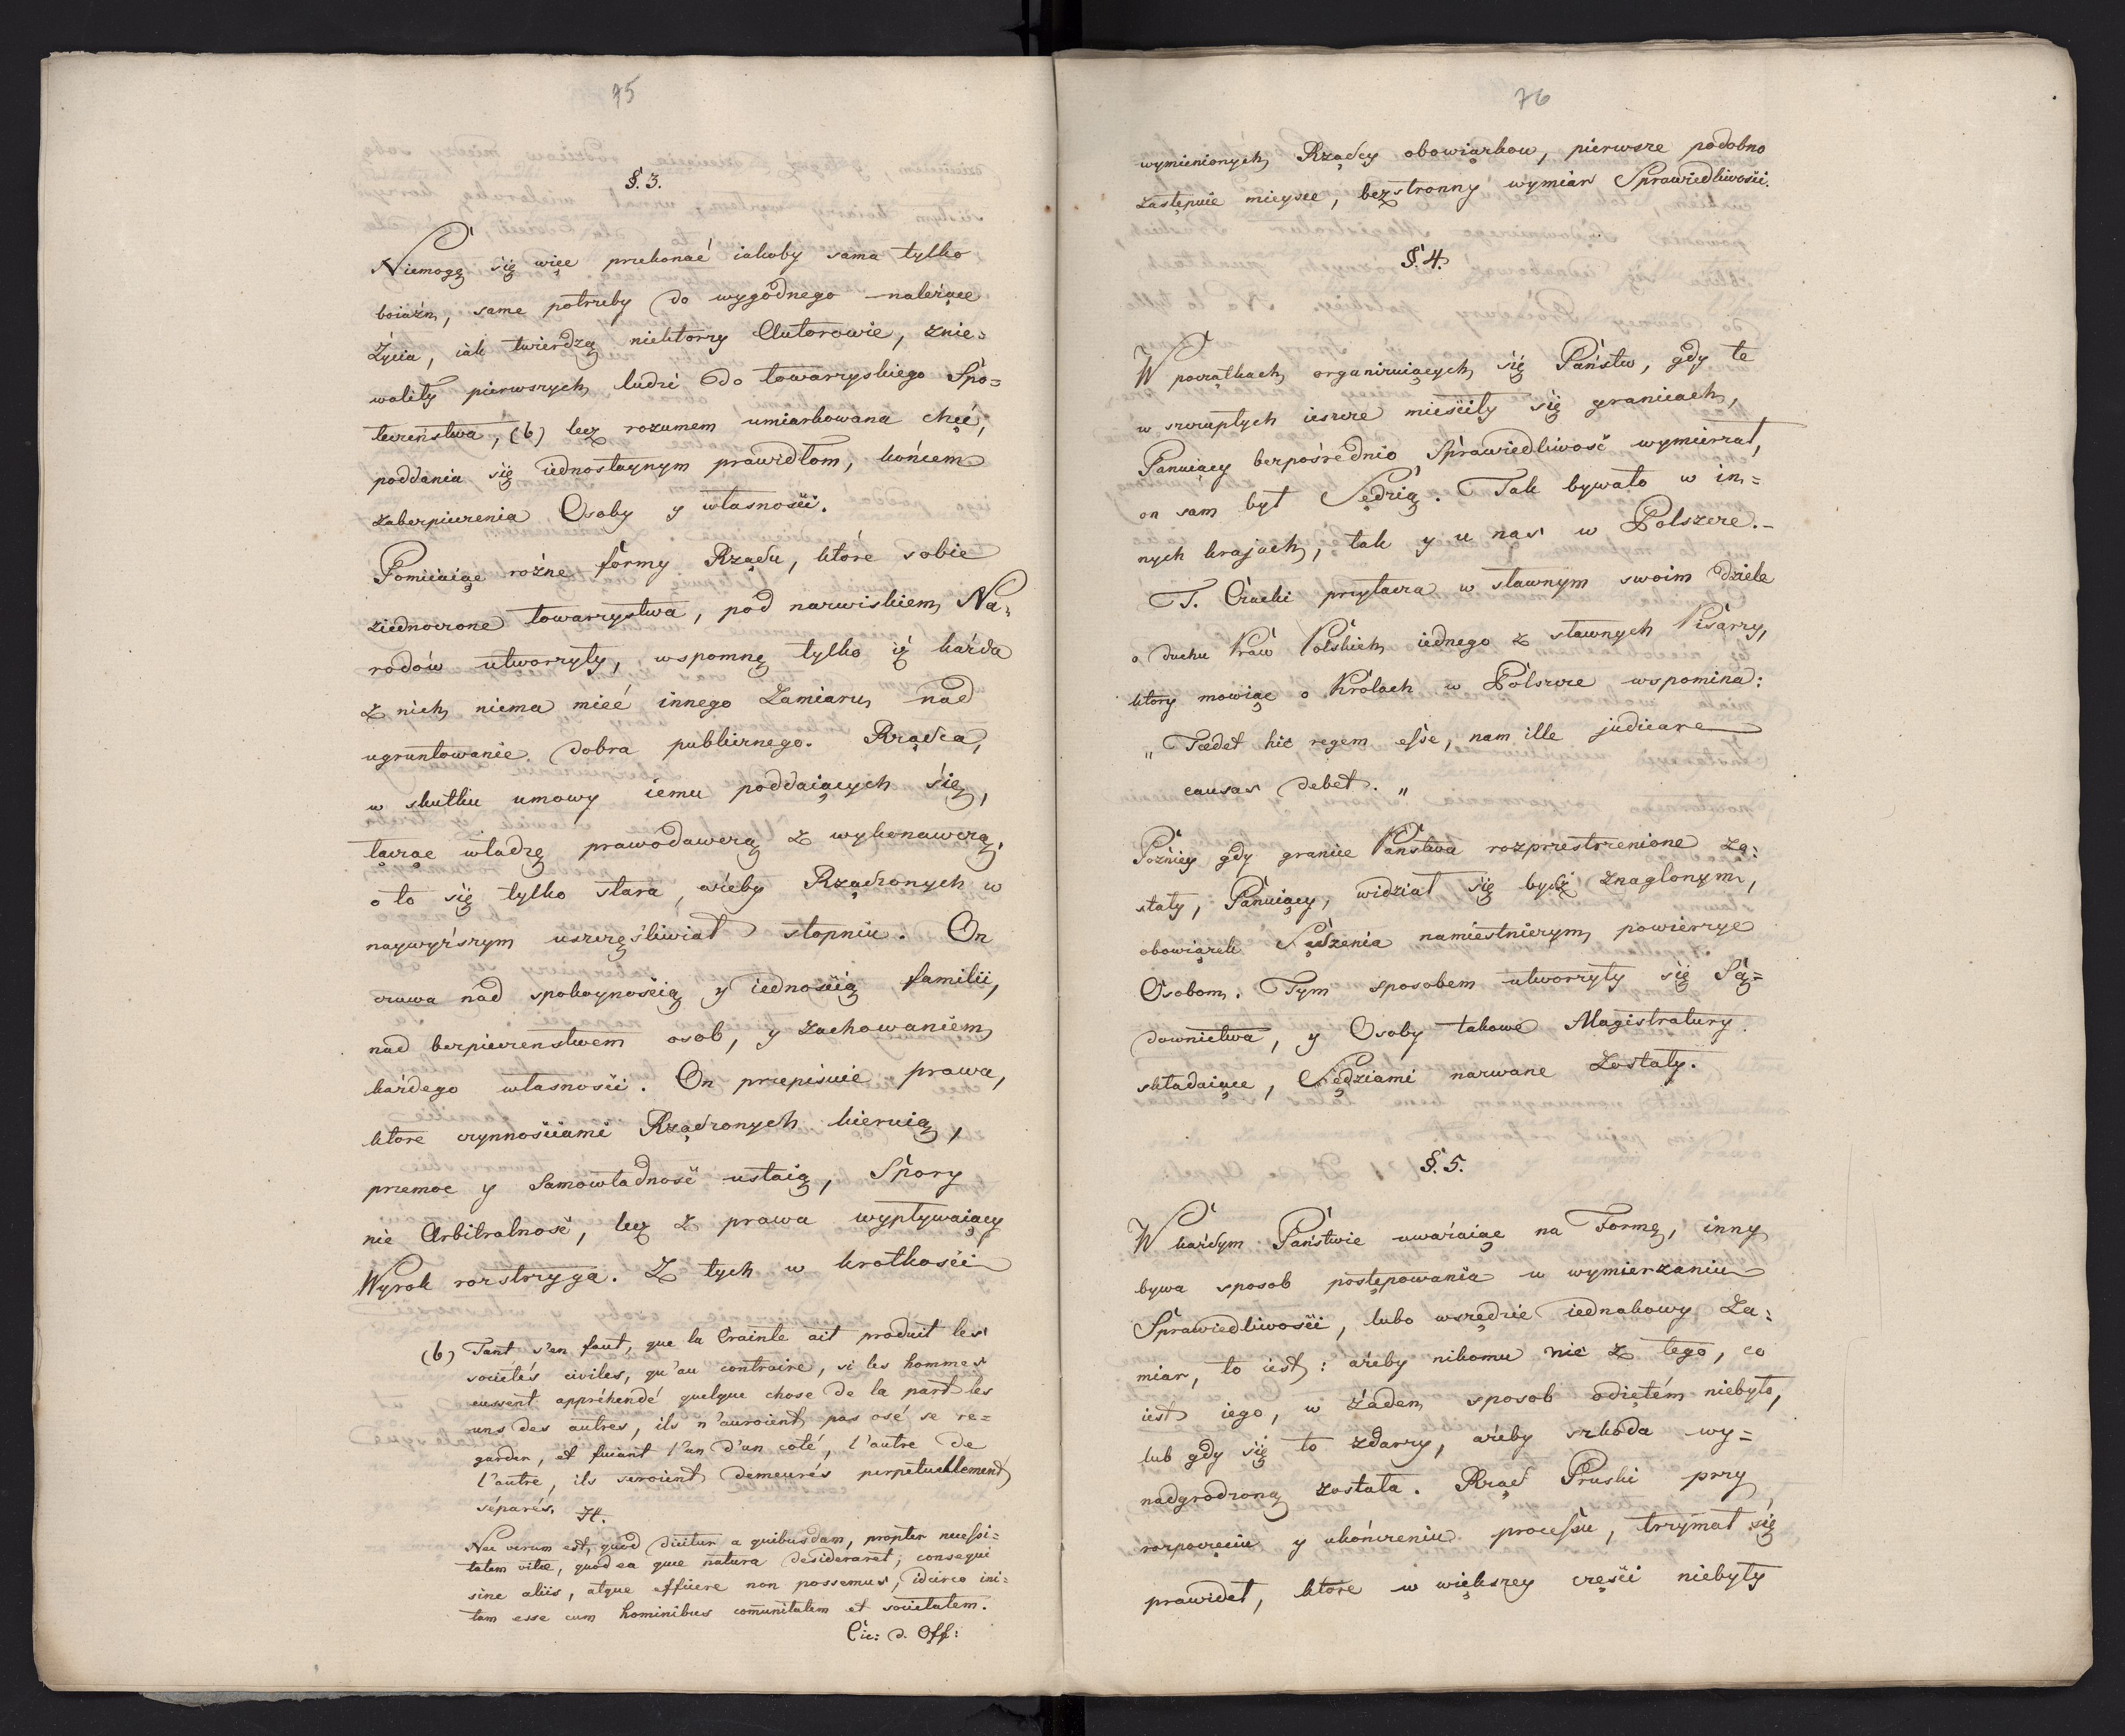 75
§. 3.
Niemogę się więc przekonać iakoby sama tylko
boiaźn, same potrzeby do wygodnego należące
Życia, iak twierdzą niektorzy Autorowie, znie=
woliły pierwszych ludzi do towarzyskiego Spo=
łeczeństwa, (b) lecz rozumem umiarkowana chęć,
poddania się iednostaynym prawidłom, końcem
zabezpieczenia Osoby y własności.
Pomiiaiąc rożne formy Rządu, które sobie
ziednoczone towarzystwa, pod nazwiskiem Na=
rodów utworzyły, wspomnę tylko iż każda
z nich niema mieć innego Zamiaru nad
ugruntowanie dobra publicznego. Rządca,
w skutku umowy iemu poddaiących się,
łącząc władzę prawodawczą z wykonawczą,
o to się tylko stara, ażeby Rządzonych w
naywyższym uszczęśliwiał stopniu. On
czuwa nad spokoynością y iednością familii,
nad bezpieczenstwem osob, y zachowaniem
każdego własności. On przepisuie prawa,
ktore czynnościami Rządzonych kieruią,
przemoc y Samowładność ustaią, Spory
nie Arbitralność, lecz z prawa wypływaiący
Wyrok rozstrzyga. Z tych w krotkości
(b) Tant s'en faut, que la Crainte ait produit les
societés civiles, qu'au contraire, si les hommes
eussent appréhendé quelque chose de la part les
uns des autres, ils n'auroient pas osé se re=
garder, et fuiant l'un d'un coté, l'autre de
l'autre, ils seroient demeurés perpetuellement
séparés. H.
Nec verum est, quod dicitur a quibusdam, propter necessi=
tatem vitæ, quod ea quæ natura desideraret, consequi
sine aliis, atque efficere non possemus, idcirco ini=
tam esse cum hominibus comunitatem et societatem.
Cic: d. Off:
76
wymienionych Rządcy obowiązkow, pierwsze podobno
zastępuie mieysce, bezstronny wymiar Sprawiedliwości.
§. 4.
W początkach organizuiących się Państw, gdy te
w szczupłych ieszcze mieściły się granicach,
Panuiący bezpośrednio Sprawiedliwość wymierzał,
on sam był Sędzią. Tak bywało w in=
nych krajach, tak y u nas w Polszcze.-
T. Czacki przytacza w sławnym swoim dziele
o duchu Praw Polskich iednego z sławnych Pisarzy,
ktory mowiąc o Królach w Polszcze wspomina:
„Tædet hic regem esse, nam ille judicare
causas debet."
Pożniey gdy granice Państwa rozprzestrzenione zo=
stały, Panuiący, widział się bydź znaglonym,
obowiązek Sądzenia namiestniczym powierzyc
Osobom. Tym sposobem utworzyły się Są=
downictwa, y Osoby takowe Magistratury
składaiące, Sędziami nazwane Zostały.
§. 5.
W każdym Państwie uważaiąc na Formę, inny
bywa sposob postępowania w wymierzaniu
Sprawiedliwości, lubo wszędzie iednakowy Za=
miar, to iest: ażeby nikomu nic z tego, co
iest iego, w żaden sposob odiętem niebyło,
lub gdy się to zdarzy, ażeby szkoda wy=
nadgrodzoną została. Rząd Pruski przy
rozpoczęciu y ukończeniu processu, trzymał się
prawideł, ktore w większey części niebyły